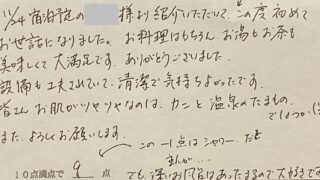 11/24 宿泊予定の 様より紹介いただいて、この度初めて
お世話になりました。お料理はもちろん、お湯もお茶も
美味しくて大満足です。ありがとうございました。
設備も工夫されていて、清潔で気持ちよかったです。
皆さんお肌がツヤツヤなのは、カニと温泉のたまもの
でしょうか
また、よろしくお願いします。
この一点はシャワー だ
10点満点で 9 点
でも 深いお風呂はあったまるので大好きです